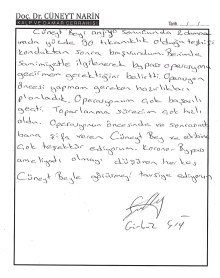 Doç. Dr. CÜNEYT NARİN
KALP VE DAMAR CERRAHİSİ
Cüneyt Beyi anjiyo sonucunda 2 damarı
mda yüzde 90 tıkanıklık olduğu teşhisi
konduktan sonra başvurdum. Benimle
samimiyetle ilgilenerek bypass operasyonu
geçirmem gerektiğini belirtti. Operasyon
öncesi yapmam gereken hazırlıkları
planladık. Operasyonum çok başarılı
geçti. Toparlanma sürecim çok hızlı
oldu. Operasyonun öncesinde ve sonrasında
bana şifa veren Cüneyt Bey ve ekibine
çok teşekkür ediyorum. Koroner Bypass
ameliyatı olmayı düşünen herkes
Cüneyt Beyle görüşmeyi tavsiye ediyorum